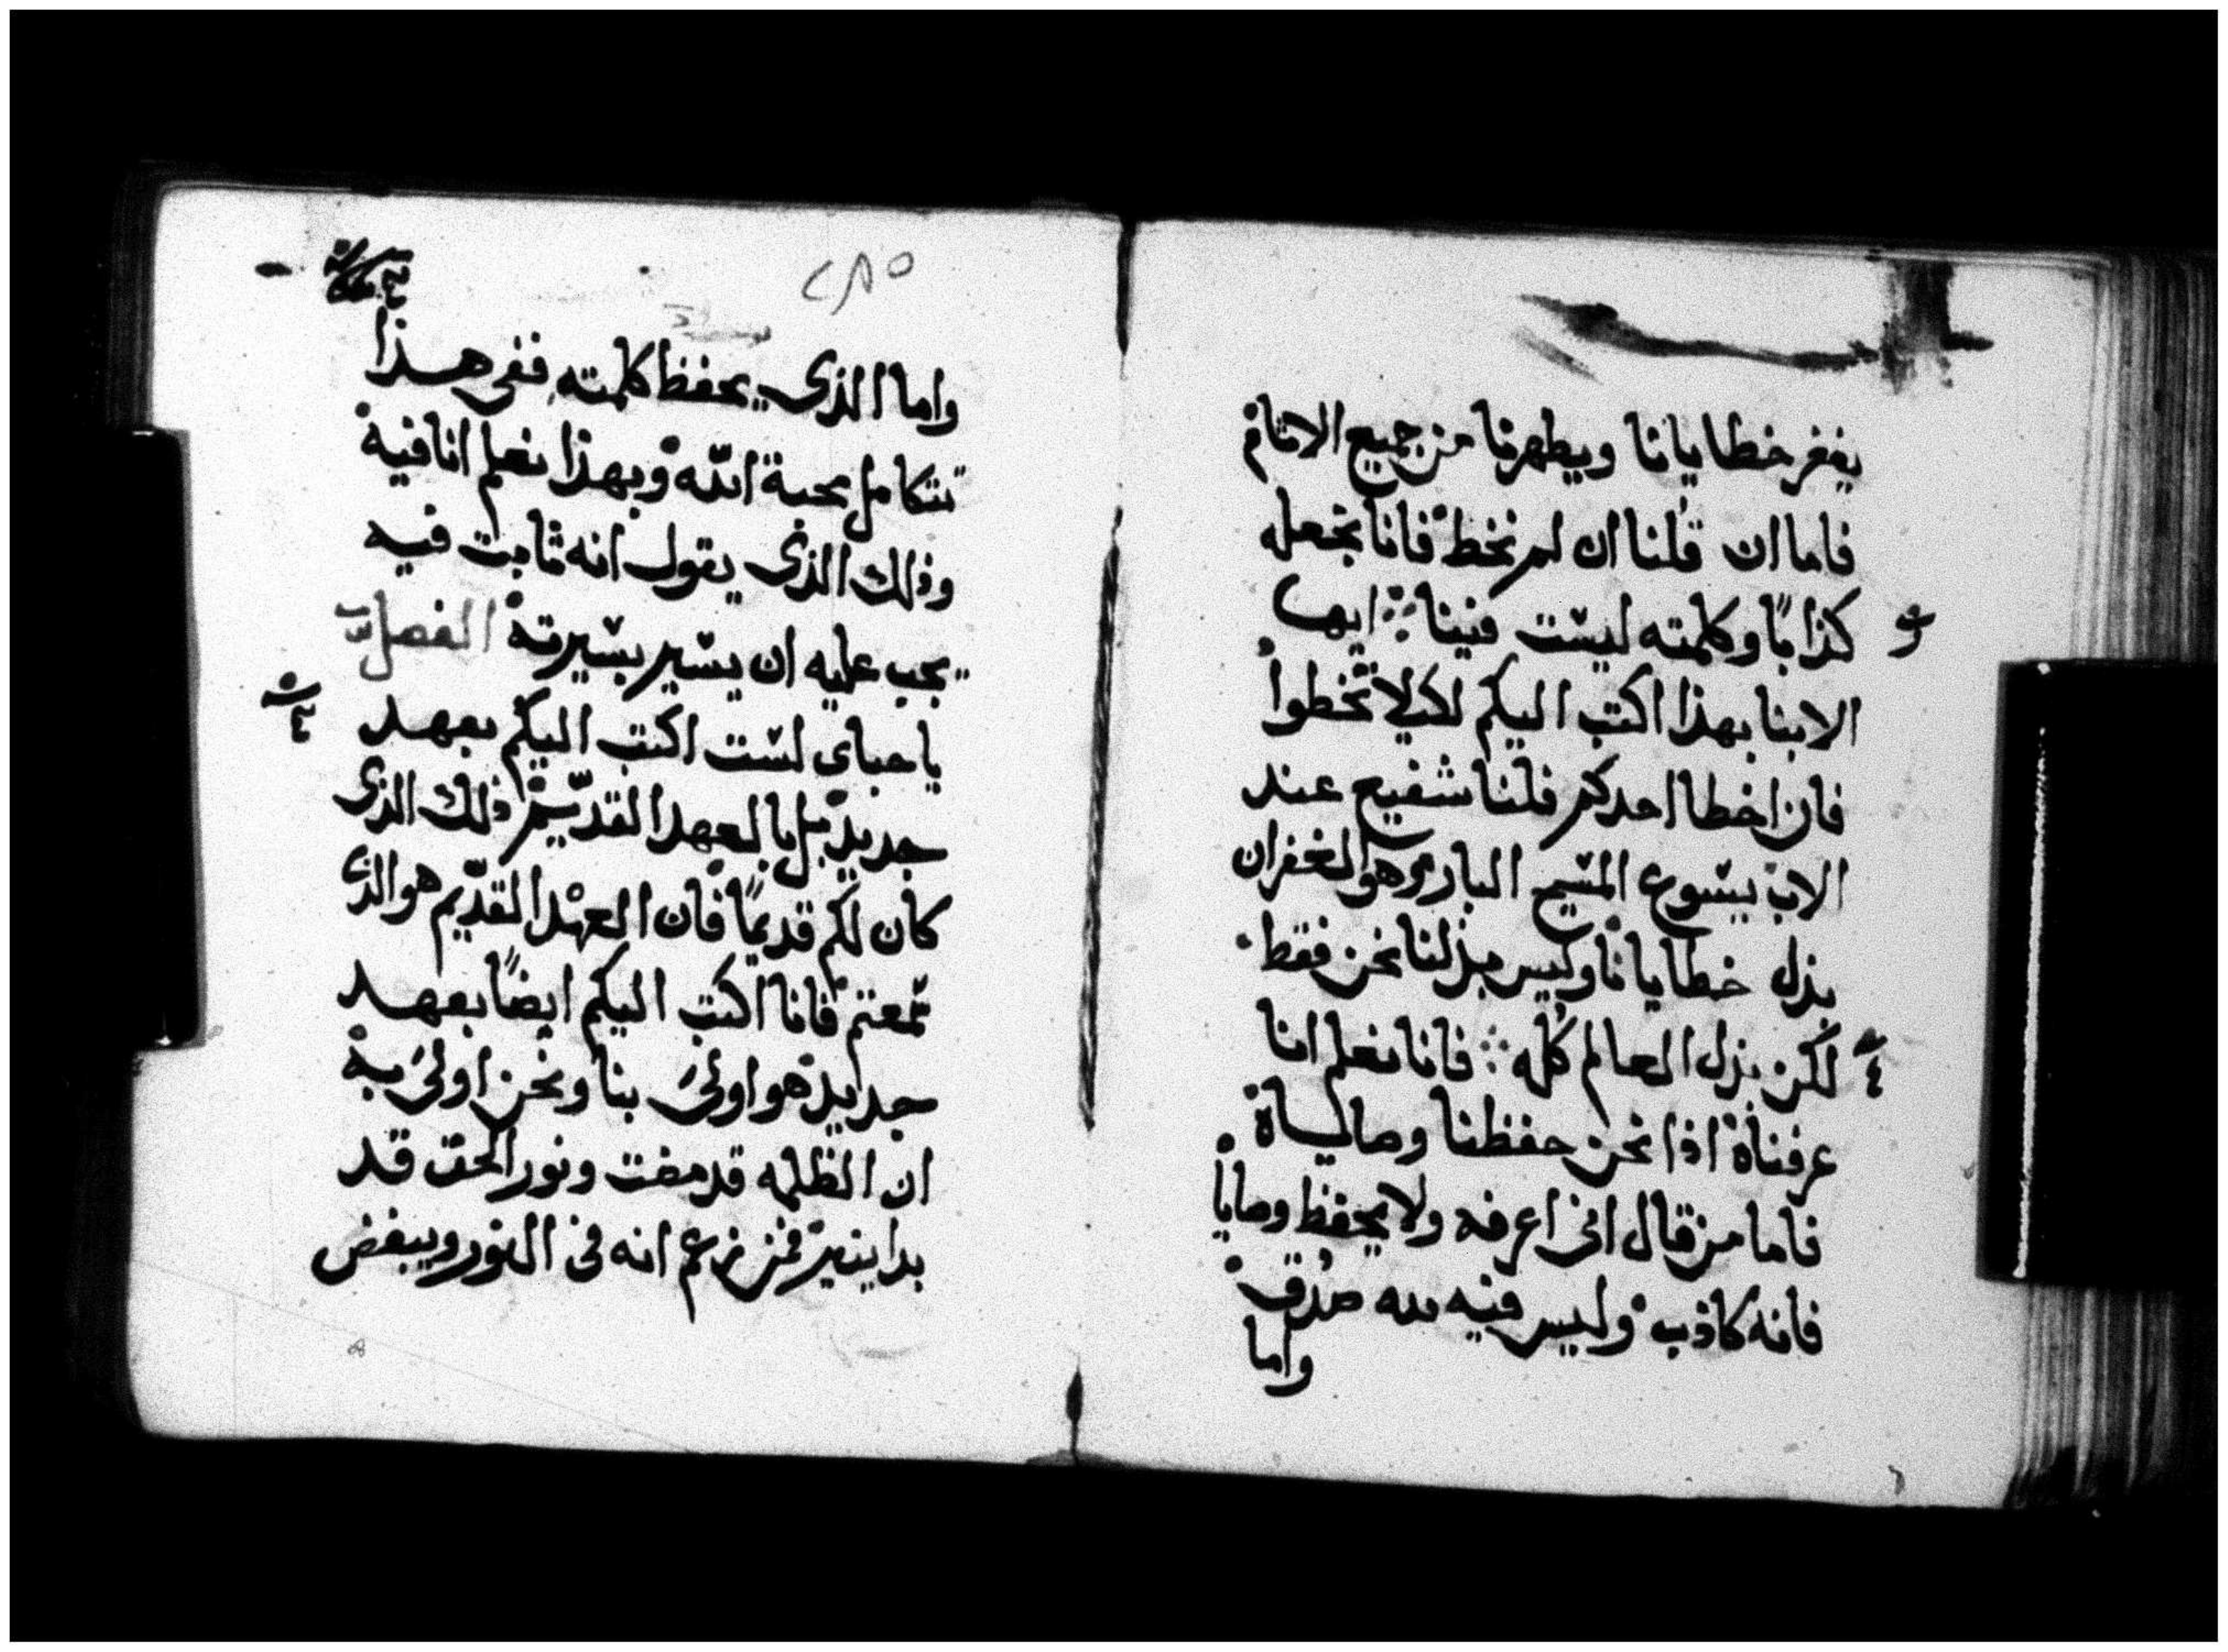 يغفر خطايانا ويطهرنا من جميع الاثام
فاما ان قلنا ان لم نخط فانا نجعله
كذابًا وكلمته ليست فينا ܀ ايها
الابنا بهذا اكتب اليكم لكيلا تخطوا
فان اخطا احدكم فلنا شفيع عند
الاب يسوع المسيح البار وهو الغفران
بدل خطايانا وليس بدلنا نحن فقط
لكن بدل العالم كله ܀ فانا نعلم انا
عرفناه اذا نحن حفظنا وصاياه
فاما من قال اني اعرفه ولا يحفظ وصاياه
فانه كاذب وليس فيه لله صدق
واما
٢٨٥
واما الذي يحفظ كلمته ففي هذا
تتكامل محبة الله وبهذا نعلم انا فيه
وذلك الذي يقول انه ثابت فيه
يجب عليه ان يسير بسيرته الفصل
ياحباي لست اكتب اليكم بعهد
جديد بل بالعهد القديم ذلك الذي
كان لكم قديمًا فان العهد القديم هو الذي
سمعتم فانا اكتب اليكم ايضًا بعهد
جديد هو اولى بنا ونحن اولى به
ان الظلمه قد مضت ونور الحق قد
بدا ينير فمن زعم انه في النور ويبغض